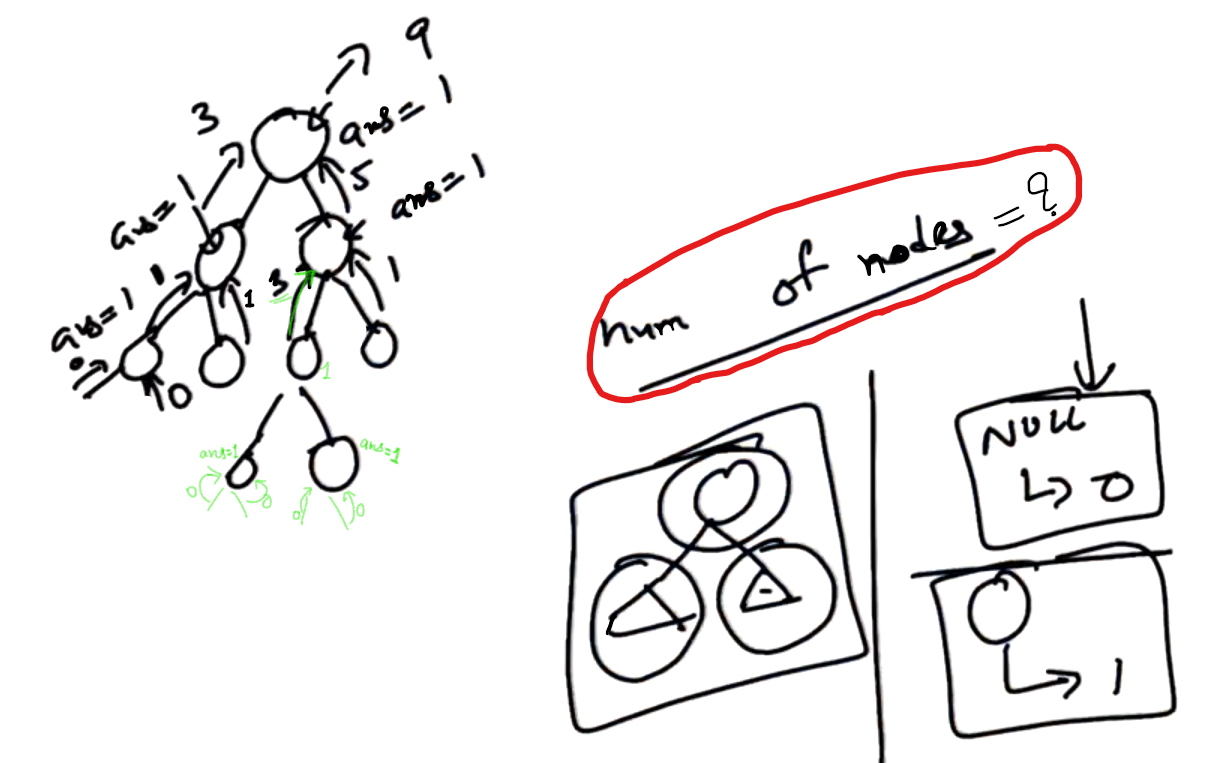 9
3
ans = 1
5
ans = 1
ans = 1
1
1
3
1
ans = 1
0
0
1
ans=1
ans=1
0
0
0
0
num of nodes = ?
NULL
↳ 0
↳ 1